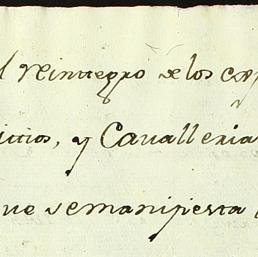 l reinttegro de los
ittios, y Cavalleria
ue se manifiesta